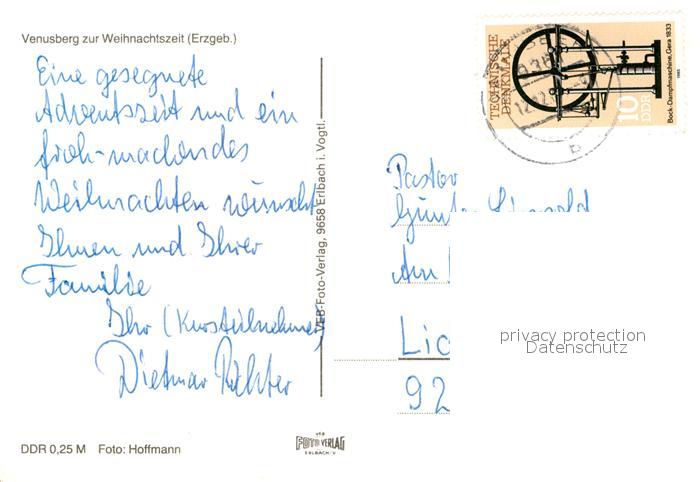 Venusberg zur Weihnachtszeit (Erzgeb.)
Eine gesegnete
Adventszeit und ein
froh-machendes
Weihnachten wünscht
Ihnen und Ihrer
Familie
Ihr (Kursteilnehmer)
Dietmar Richter
DDR 0,25 M Foto: Hoffmann
VEB-Foto-Verlag, 9658 Erlbach i. Vogtl.
VEB
FOTO VERLAG
ERLBACH/V
TECHNISCHE
DENKMALE
10
DDR
Bock-Dampfmaschine, Gera 1833
1985
Pastor
Am
92
privacy protection
Datenschutz